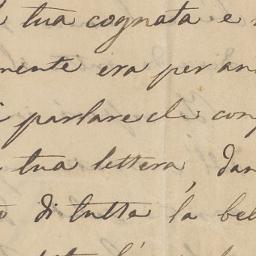 tua cognata e
mente era per an
parlare di con
tua lettera, dan
di tutta la bel